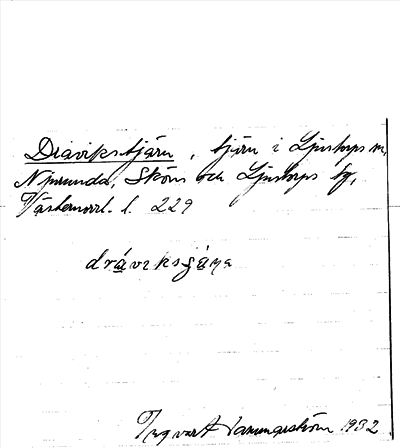 Draviks tjärn, tjärn i Ljustorps sn,
Njurunda, Sköns och Ljustorps tg,
Västernorrl. l. 229
dráviksjä̀ṇa
Ingvar Hammarström 1932